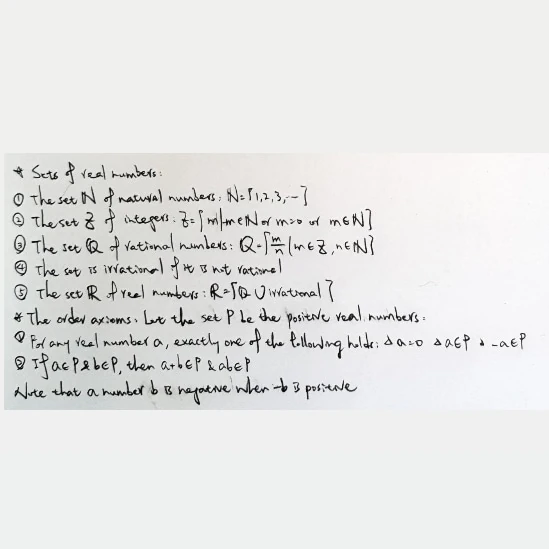 * Sets of real numbers:
① The set ℕ of natural numbers: ℕ={1,2,3,…}
② The set ℤ of integers: ℤ={m|-m∈ℕ or m=0 or m∈ℕ}
③ The set ℚ of rational numbers: ℚ={m/n|m∈ℤ,n∈ℕ}
④ The set is irrational if it is not rational
⑤ The set ℝ of real numbers: ℝ={ℚ∪irrational}
* The order axioms. Let the set P be the positive real numbers:
① For any real number a, exactly one of the following holds: △ a=0 △ a∈P △ -a∈P
② If a∈P & b∈P, then a+b∈P & ab∈P
Note that a number b is negative when -b is positive